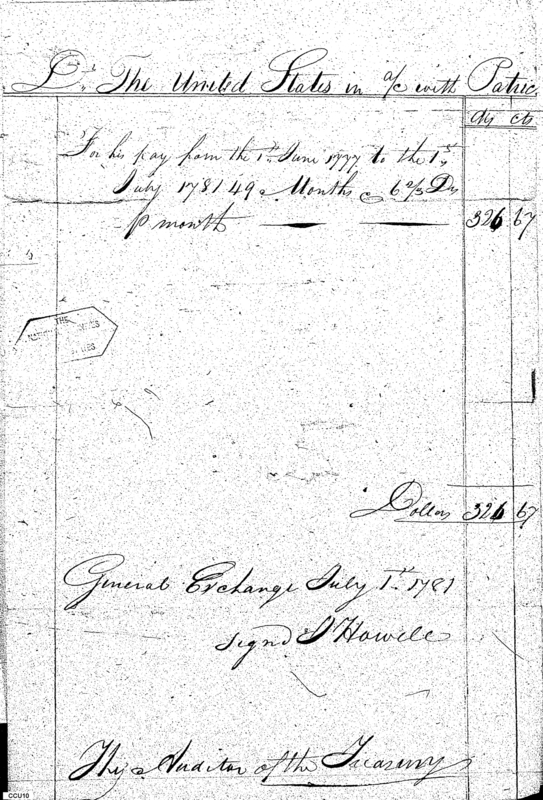 Dr. The United States in a/c with Patric
dls cts
For his pay from the 1st June 1777 to the 1st
July 1781 49 Months @ 6 2/3 Ds
p month 326 67
THE
Dollars 326 67
General Exchange July 1st 1781
signd Howell
The Auditor of the Treasury
CCU10